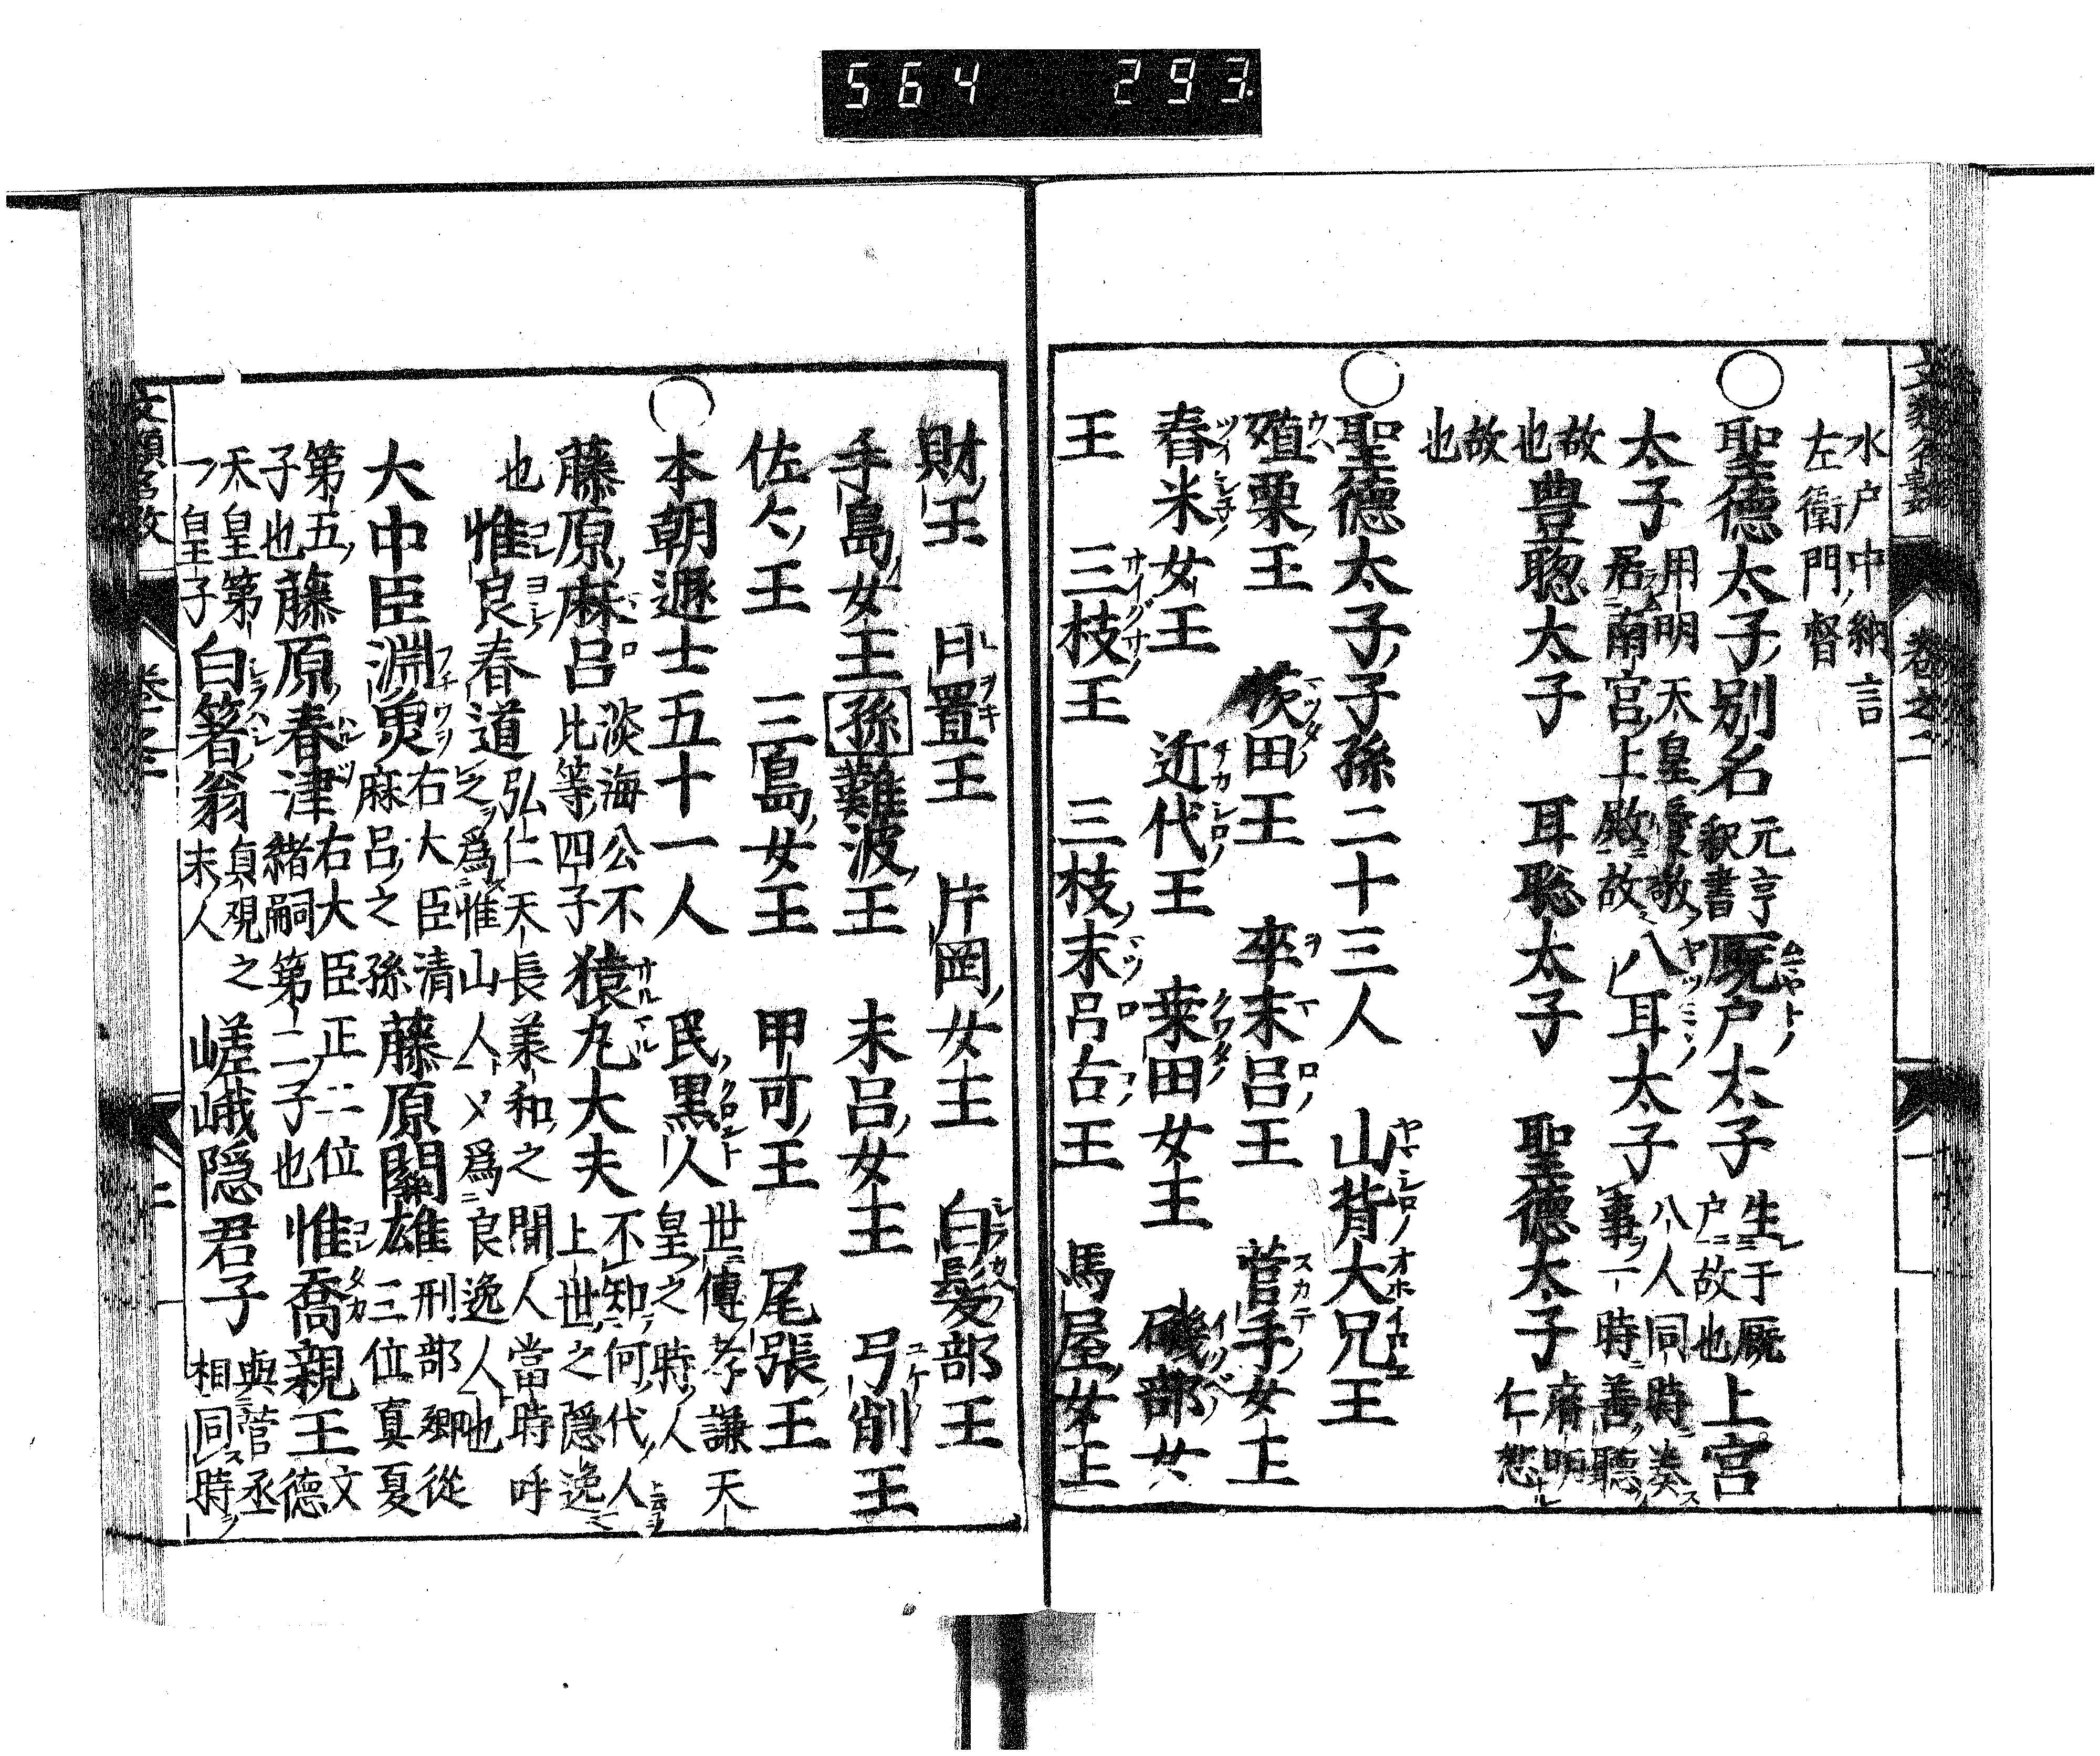 564 293
水戸中納言
左衛門督
聖德太子別名 元亨釈書 厩戸太子 生于厩戸故也 上宮
太子 用明天皇愛敬居南宮上殿故 八耳太子 八人同時奏事一時善聽
故也 豊聡太子 耳聡太子 聖德太子 仁慈
故也
聖德太子子孫二十三人 山背大兄王
殖栗王 茨田王 卒末呂王 菅手女王
舂米女王 近代王 桑田女王 磯部女
王 三枝王 三枝末呂古王 馬屋女王
卷之二
財王 日置王 片岡女王 白髮部王
手島女王 孫 難波王 末呂女王 弓削王
佐々王 三島女王 甲可王 尾張王
本朝遯士五十一人 民黒人 世傳孝謙天皇之時人
藤原麻呂 淡海公不比等四子 猿丸大夫 不知何代人上世之隱逸
也 惟良春道 弘仁天長美和之間人當時呼之爲惟山人又爲良逸人也
大中臣淵魚 右大臣清麻呂之孫 藤原關雄 刑部卿從三位真夏
第五子也 藤原春津 右大臣正二位緒嗣第二子也 惟喬親王 文德
天皇第一皇子 白箸翁 貞観之末人 嵯峨隱君子 與菅丞相同時